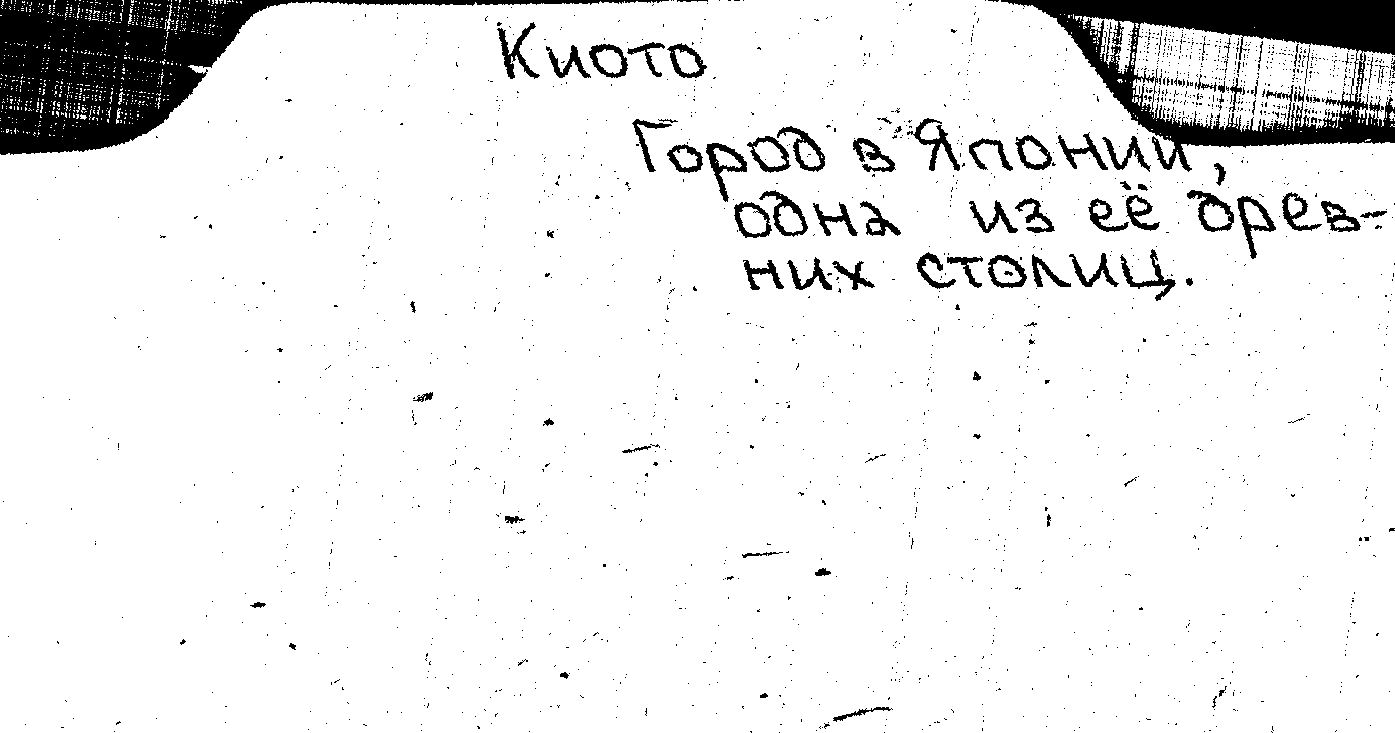 Киото
Город в Японии,
одна из её древ-
них столиц.